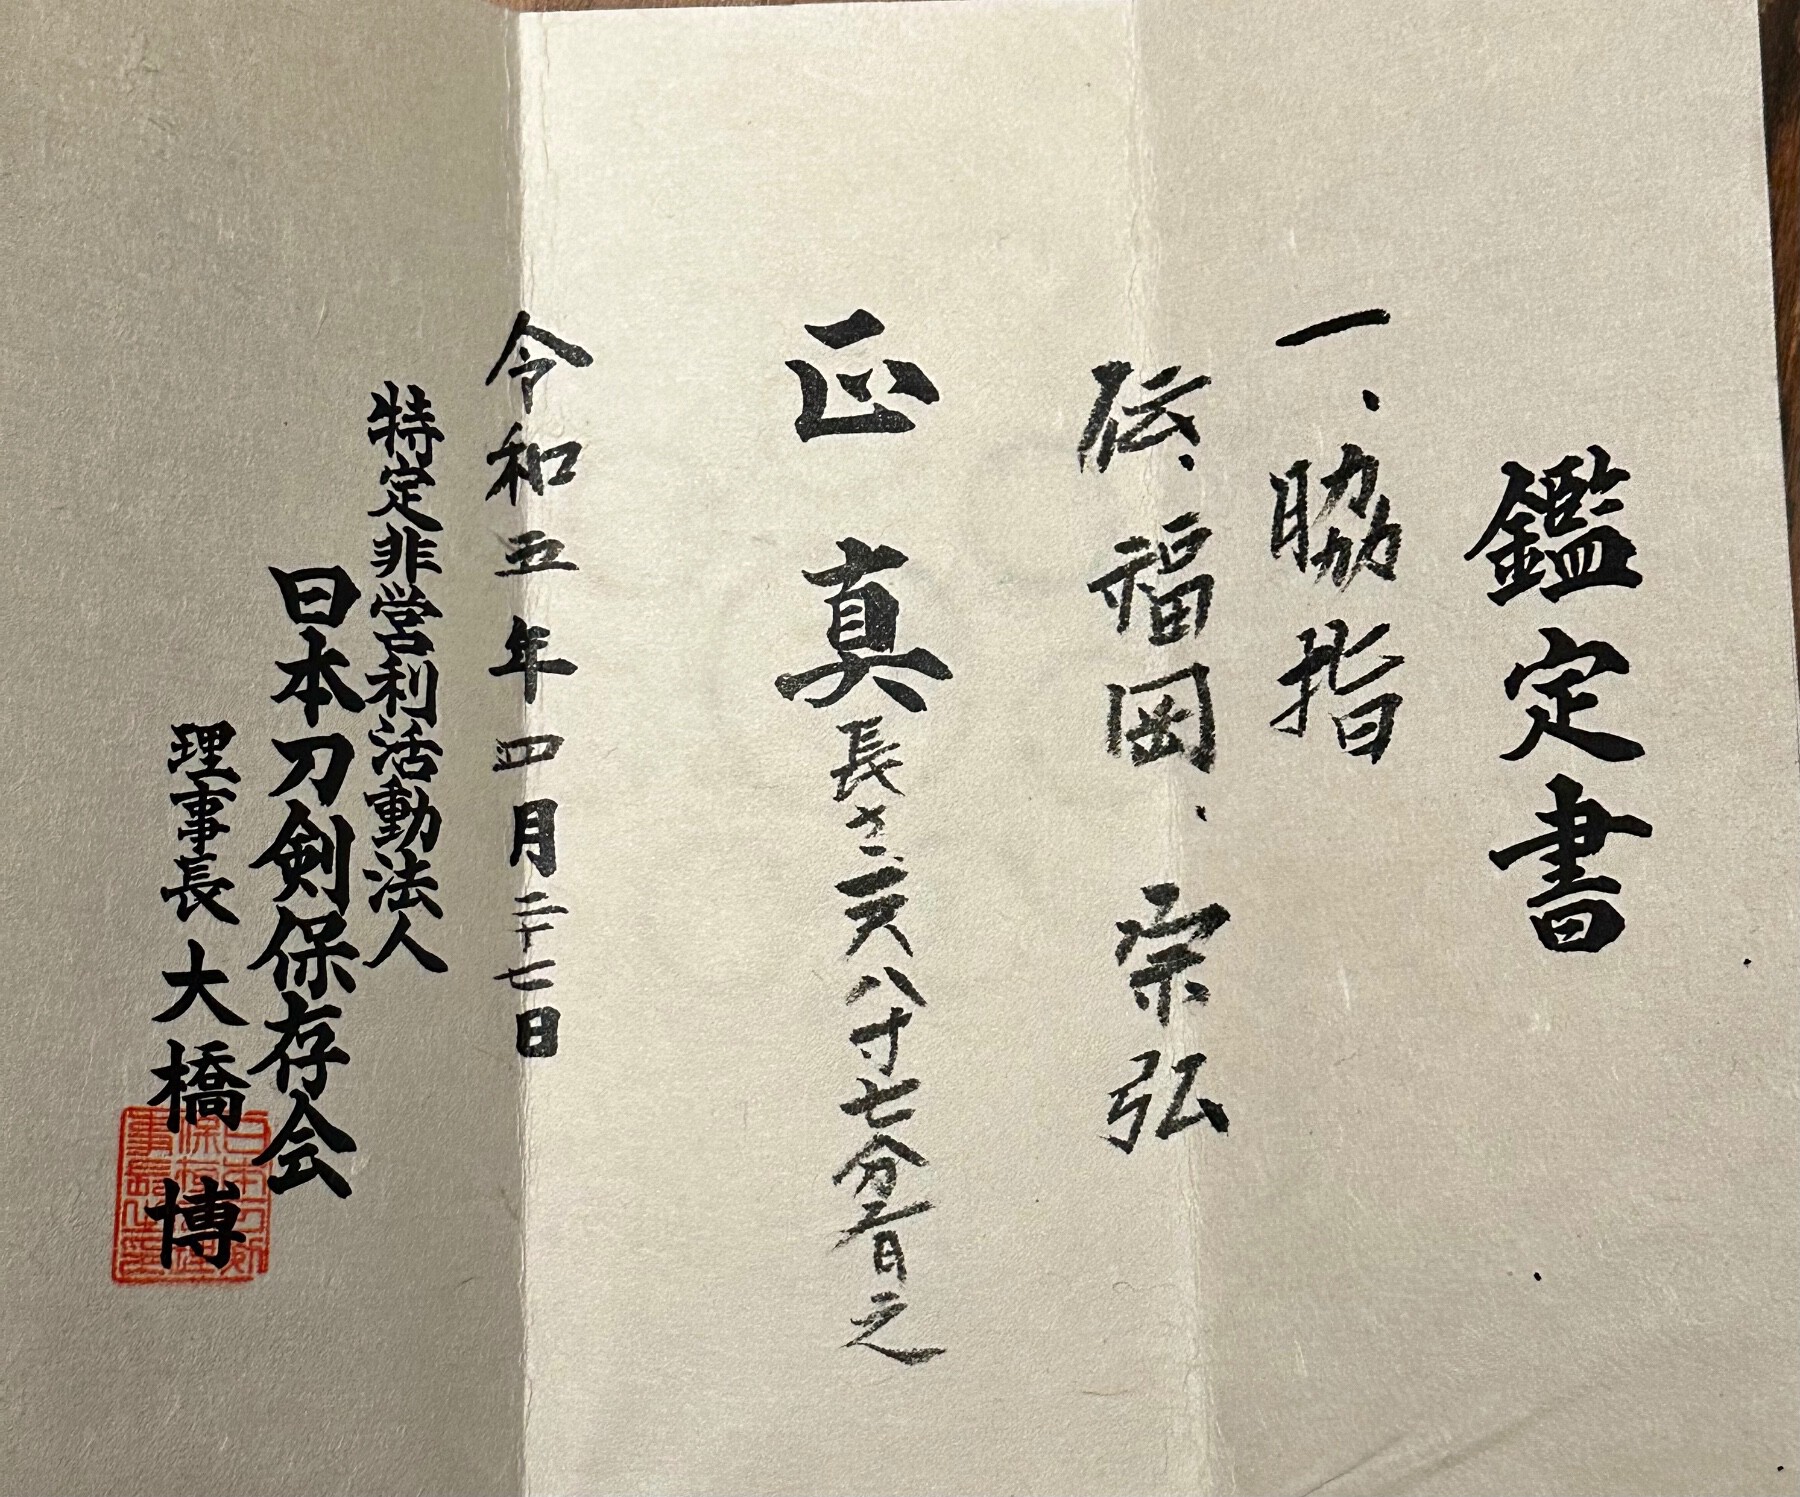 鑑定書
一、脇指
伝、福岡、宗弘
正真長さ一尺八寸七分有之
令和五年四月二十七日
特定非営利活動法人
日本刀剣保存会
理事長 大橋 博